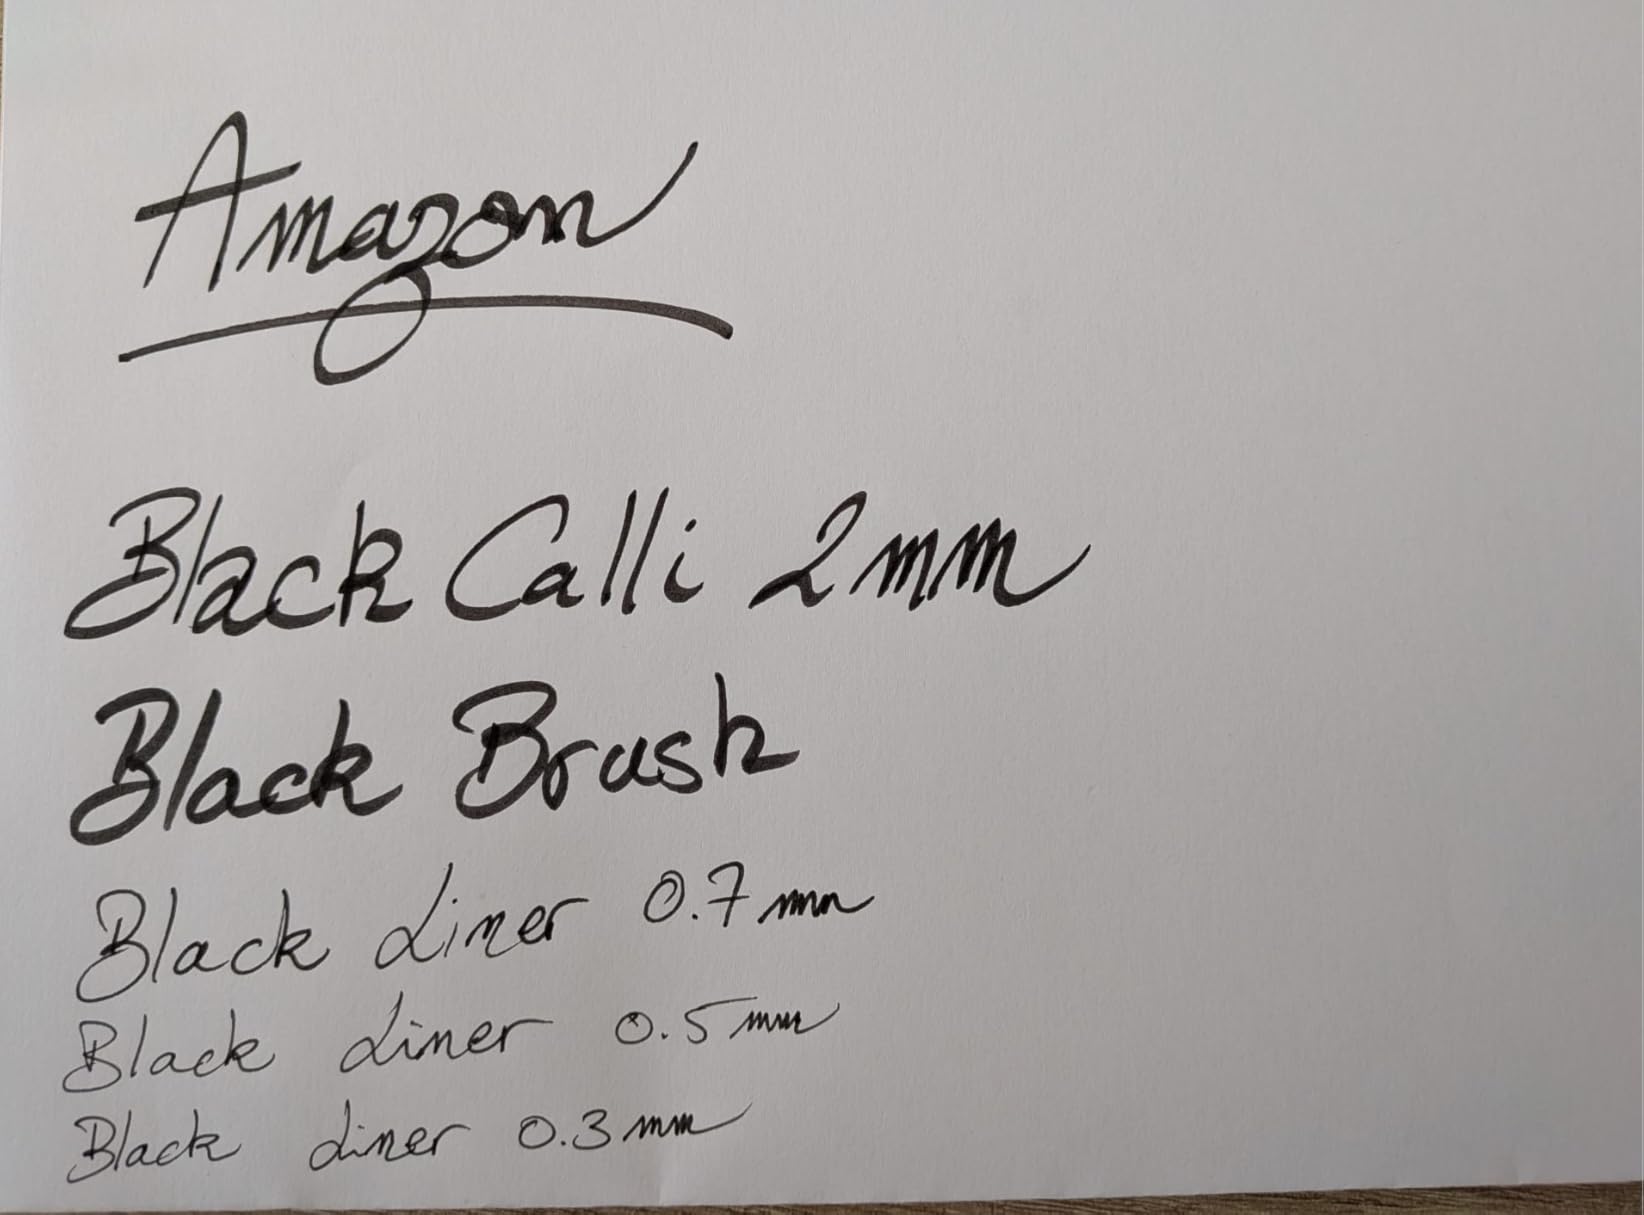 Amazon
Black Calli 2mm
Black Brush
Black Liner 0.7mm
Black Liner 0.5mm
Black Liner 0.3mm